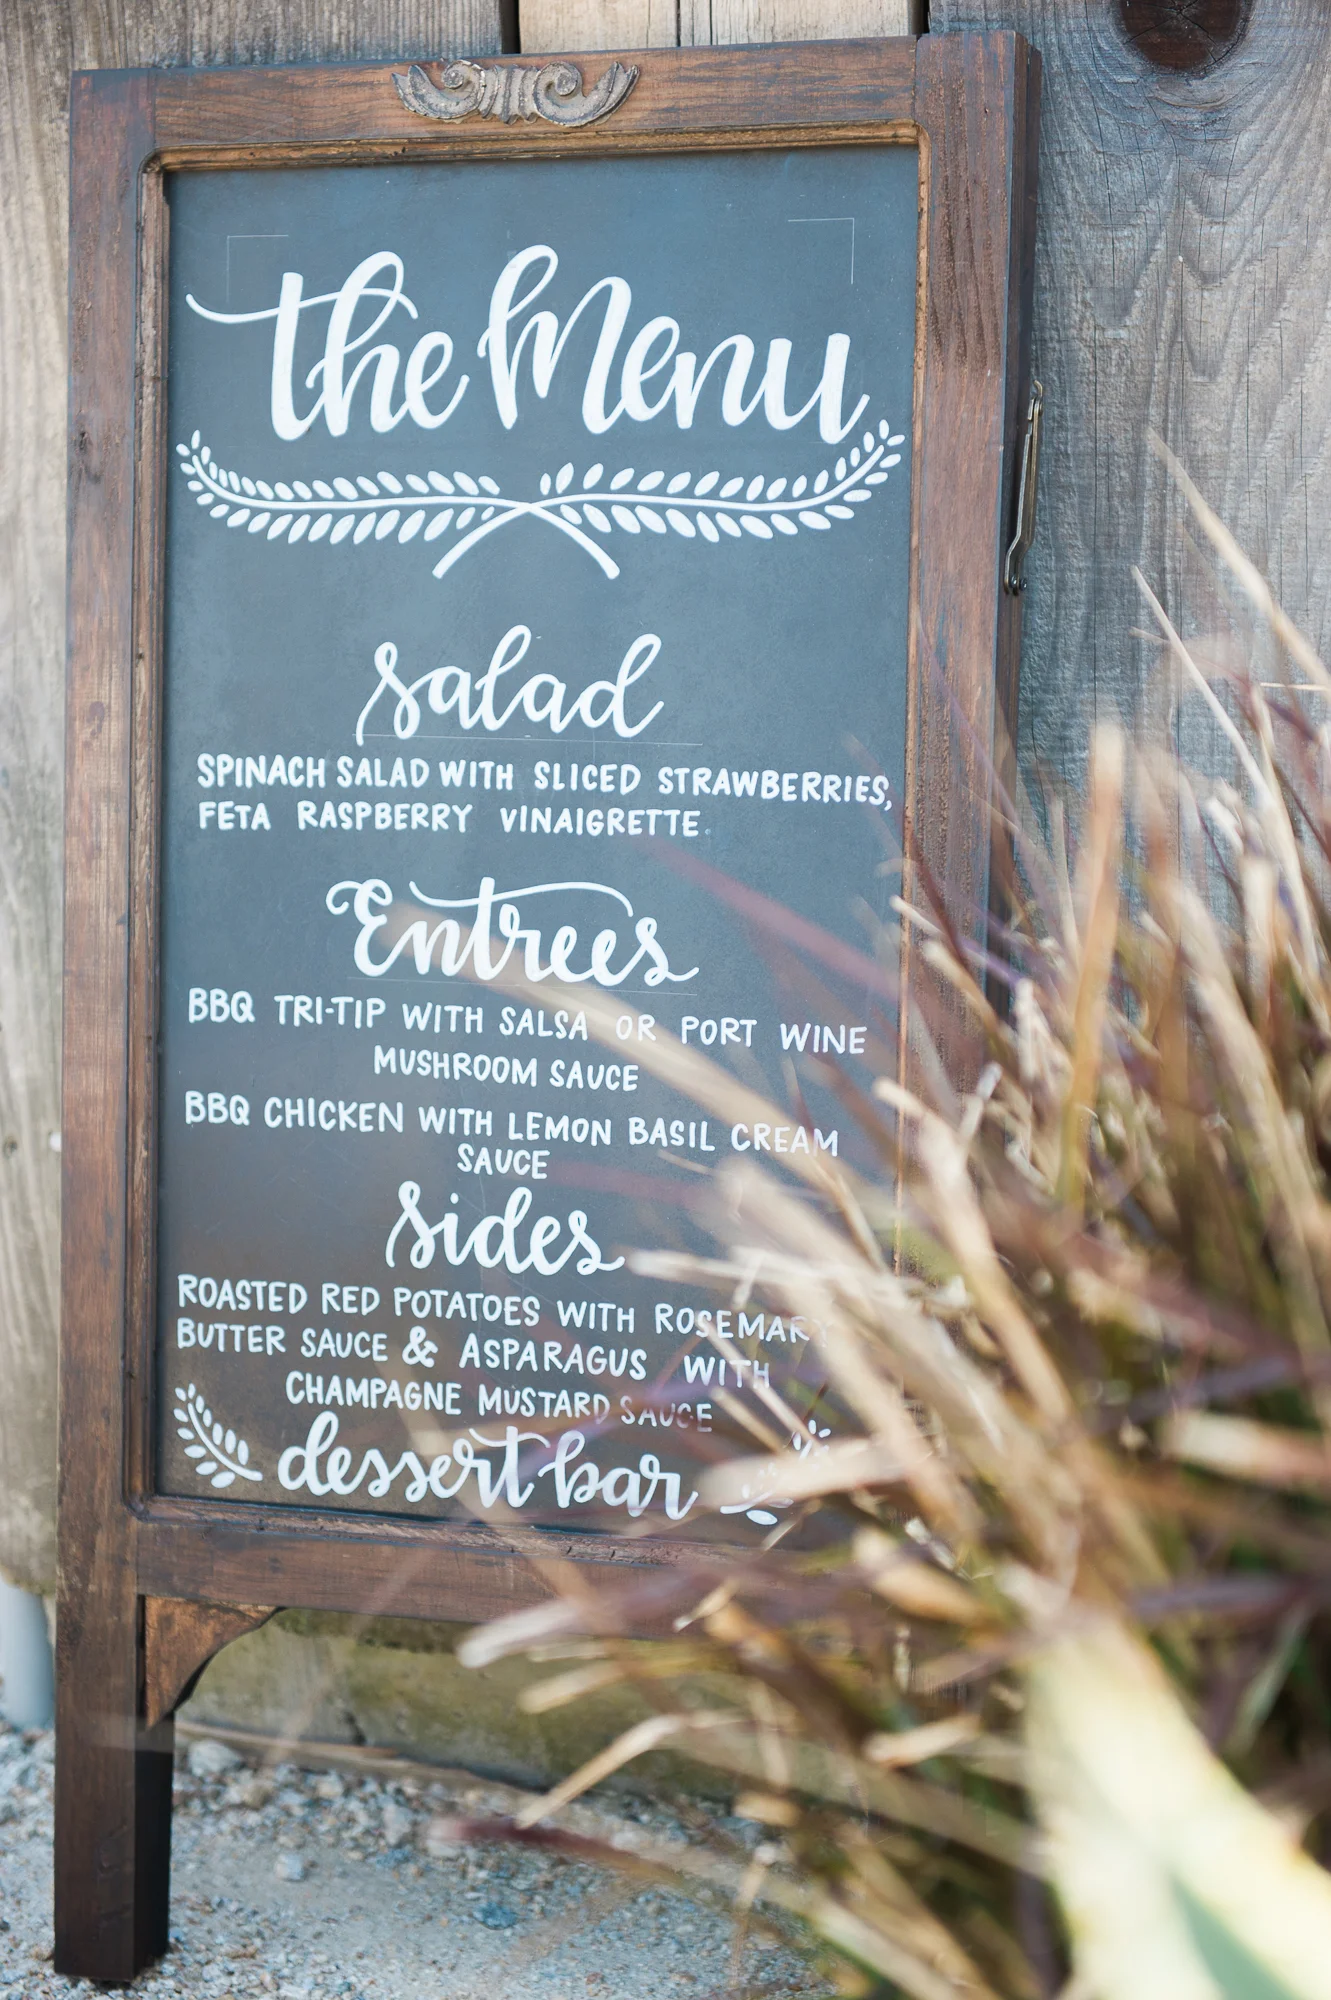 the Menu
salad
SPINACH SALAD WITH SLICED STRAWBERRIES,
FETA RASPBERRY VINAIGRETTE
Entrees
BBQ TRI-TIP WITH SALSA OR PORT WINE
MUSHROOM SAUCE
BBQ CHICKEN WITH LEMON BASIL CREAM
SAUCE
sides
ROASTED RED POTATOES WITH ROSEMARY
BUTTER SAUCE & ASPARAGUS WITH
CHAMPAGNE MUSTARD SAUCE
dessert bar